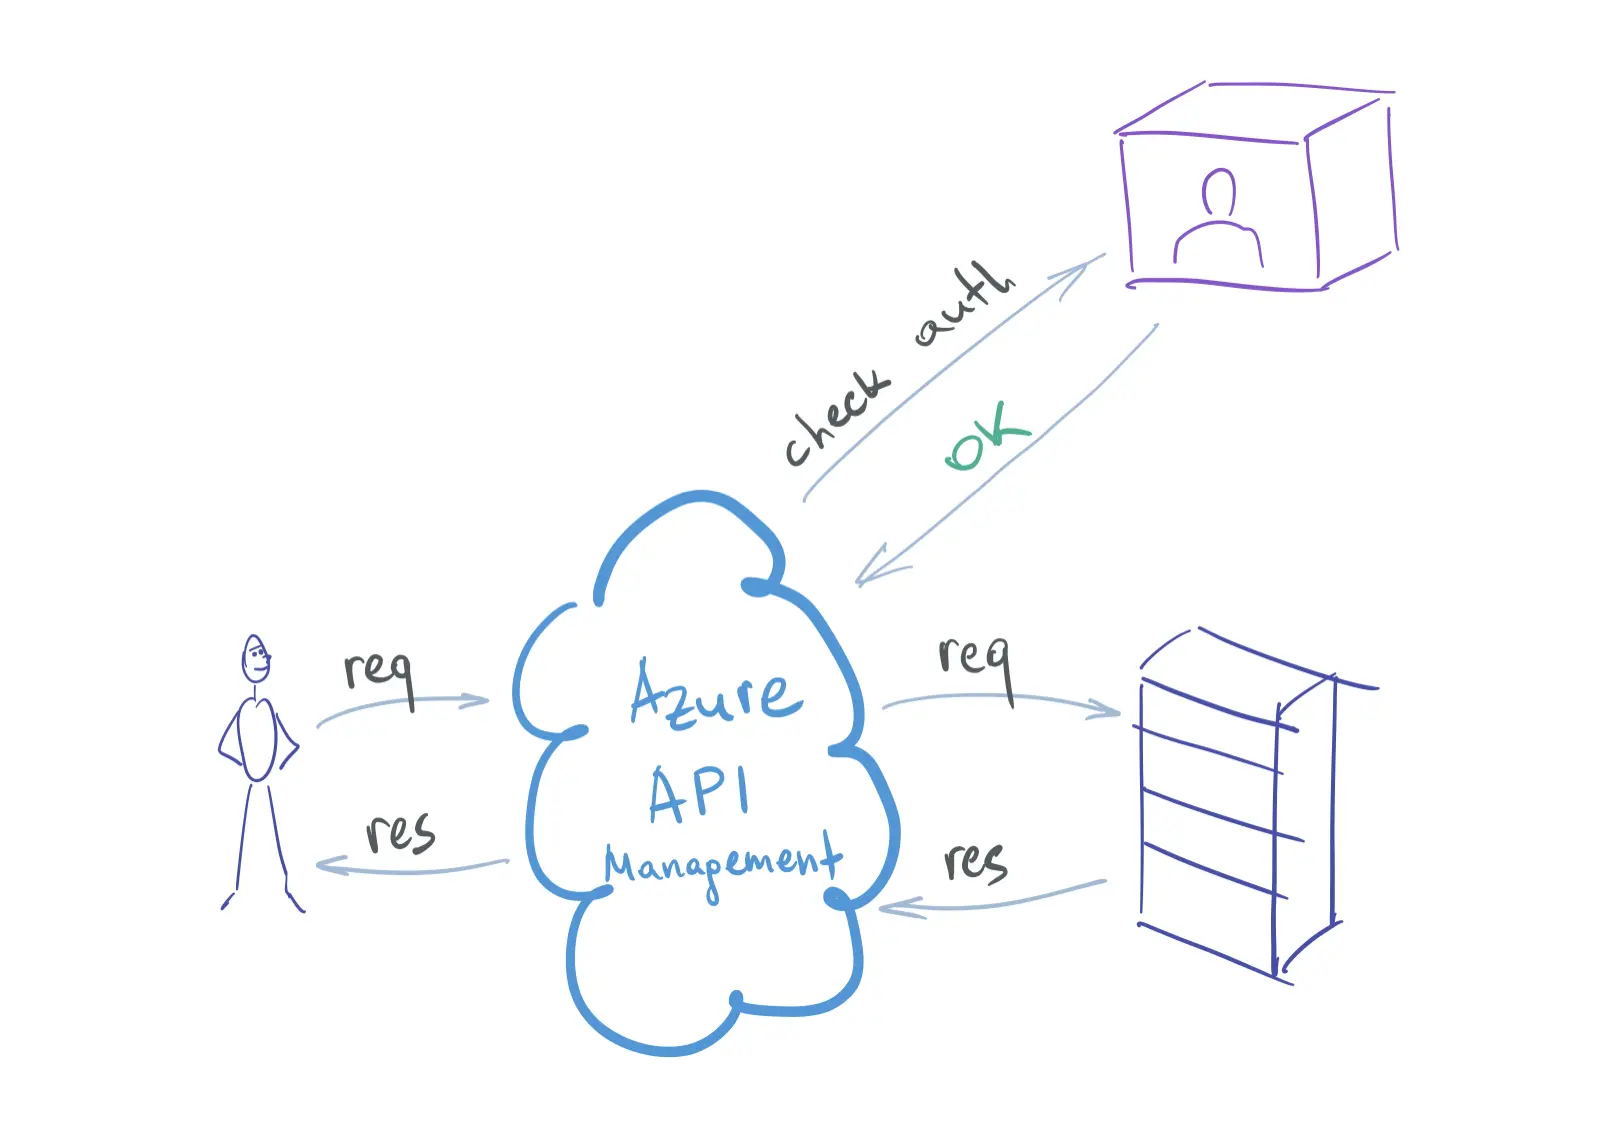 check auth
OK
req
req
Azure
API
Management
res
res